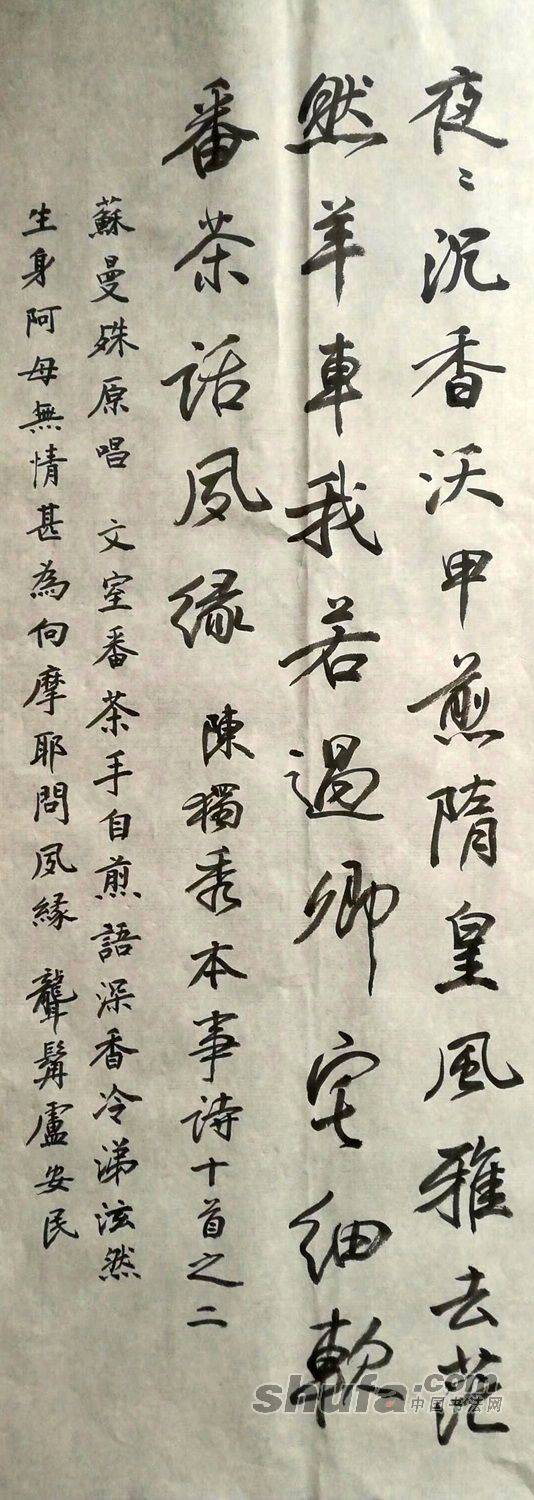 夜〻沉香沃甲煎隋皇風雅去茫
然羊車我若過卿宅細軟
番茶話夙緣 陳獨秀本事詩十首之二
蘇曼殊原唱 文室番茶手自煎語深香冷涕泫然
生身阿母無情甚為向摩耶問夙緣 聾髯盧安民
shufa.com
中国书法网